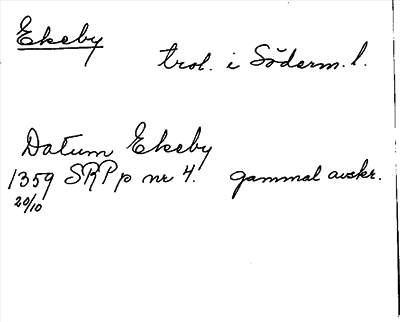 Ekeby
trol. i Söderm. l.
Datum Ekeby
1359 SRPp nr 4. gammal avskr.
20/10